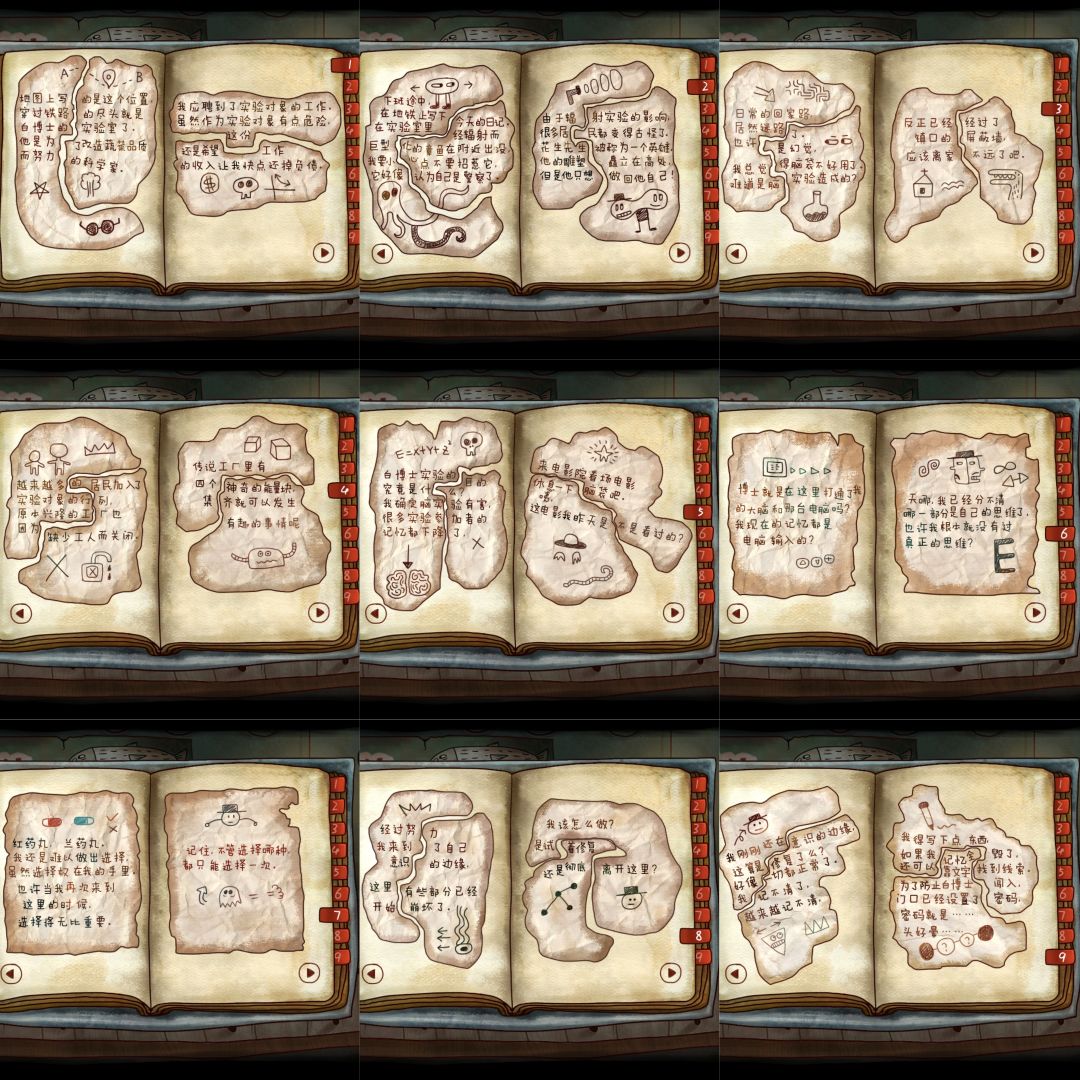 A B
地图上写的是这个位置,
穿过铁路的尽头就是
白博士的实验室了,
他是为了改造蔬菜品质
而努力的科学家。
我应聘到了实验对象的工作,
虽然作为实验对象有点危险,
还是希望这份工作
的收入让我快点还掉负债。
$
1
2
3
4
5
6
7
8
9
下班途中
在地铁上写下今天的日记,
在实验室里经辐射而
巨型化的章鱼在附近出没
我要小心点不要招惹它,
它好像认为自己是警察了。
由于辐射实验的影响,
很多居民都变得古怪了,
花生先生被称为一个英雄,
他的雕塑矗立在高处,
但是他只想做回他自己!
1
2
3
4
5
6
7
8
9
日常的回家路,
居然迷路了,
也许是幻觉,
我总觉得脑袋不好用了
难道是脑实验造成的?
反正已经经过了
镇口的屏蔽墙,
应该离家不远了吧。
1
2
3
4
5
6
7
8
9
越来越多的居民加入了
实验对象的行列,
原本兴隆的工厂也
因为缺少工人而关闭。
传说工厂里有
四个神奇的能量块,
集齐就可以发生
有趣的事情呢
1
2
3
4
5
6
7
8
9
E=X+Y+Z²
白博士实验的目的
究竟是什么?
我确定脑实验有害,
很多实验参加者的
记忆都下降了,
来电影院看场电影
休息一下脑袋吧,
嗯,
这电影我昨天是不是看过的?
1
2
3
4
5
6
7
8
9
博士就是在这里打通了我
的大脑和那台电脑吗?
我现在的记忆都是
电脑输入的?
天哪,我已经分不清
哪一部分是自己的思维了,
也许我根本就没有过
真正的思维?
E
1
2
3
4
5
6
7
8
9
红药丸,兰药丸,
我还是难以做出选择,
虽然选择权在我的手里,
也许当我再次来到
这里的时候,
选择将无比重要。
记住,不管选择哪种,
都只能选择一次。
1
2
3
4
5
6
7
8
9
经过努力
我来到了自己
意识的边缘,
这里有些部分已经
开始崩坏了,
我该怎么做?
是试着修复
还是彻底离开这里?
1
2
3
4
5
6
7
8
9
我刚刚还在意识的边缘,
这算是修复了么?
好像一切都正常了,
我记不清了,
越来越记不清,
我得写下点东西,
如果我记忆全毁了,
还可以靠文字找到线索,
为了防止白博士闯入,
门口已经设置了密码,
密码就是……
头好晕……
? ?
1
2
3
4
5
6
7
8
9